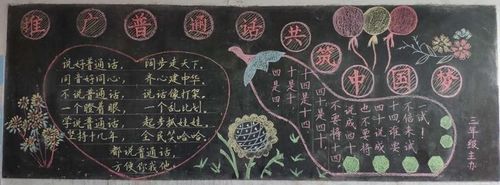 推广普通话共筑中国梦
说好普通话，阔步走天下，
同音好同心，齐心建中华。
不说普通话，说话像打架。
一个瞪着眼，一个乱比划，
学说普通话，起步抓娃娃。
坚持十几年，全民笑哈哈。
都说普通话，
方便你我他。
四是四
十是十
十四是十四
四十是四十
不要将十四
说成四十
也不要将
四十说成
十四谁要
不信来试
一试！
三年级主办